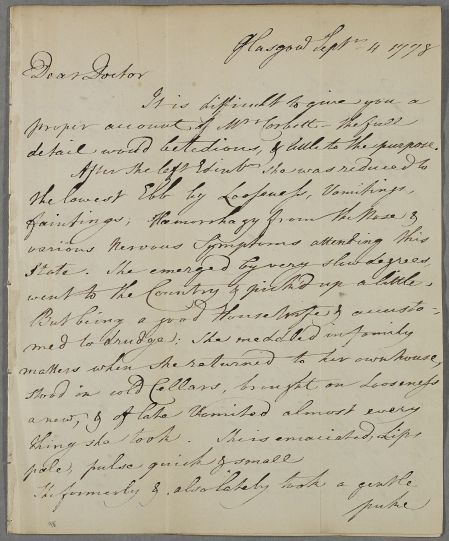 Glasgow Septr 4 1778
Dear Doctor
It is difficult to give you a
proper account of Mrs Corbett - the full
detail would be tedious, & little to the purpose.
After she left Edinr she was reduced to
the lowest Ebb by Looseness, Vomitings,
faintings; Hæmorrhagy from the Nose &
various Nervous Symptoms attending this
State. She emerged by very slow degrees
went to the Country & pick'd up a little.
But being a good House Wife & accusto-
med to drudge; She meddled in family
matters when she returned to her own house,
stood in cold Cellars, brought on Looseness
anew, & of late Vomited almost every
thing she took. She is emaciated, Lips
pale, pulse quick & small
She formerly & absolutely took a gentle
puke